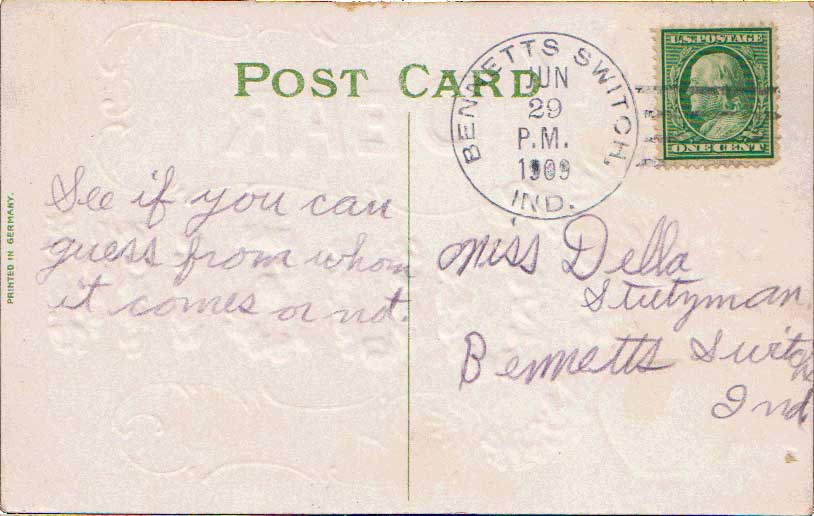 POST CARD
BENNETTS SWITCH,
JUN
29
P.M.
1909
IND.
U.S. POSTAGE
ONE CENT
PRINTED IN GERMANY.
See if you can
guess from whom
it comes or not.
Miss Della
Stutzman.
Bennetts Switch
Ind.